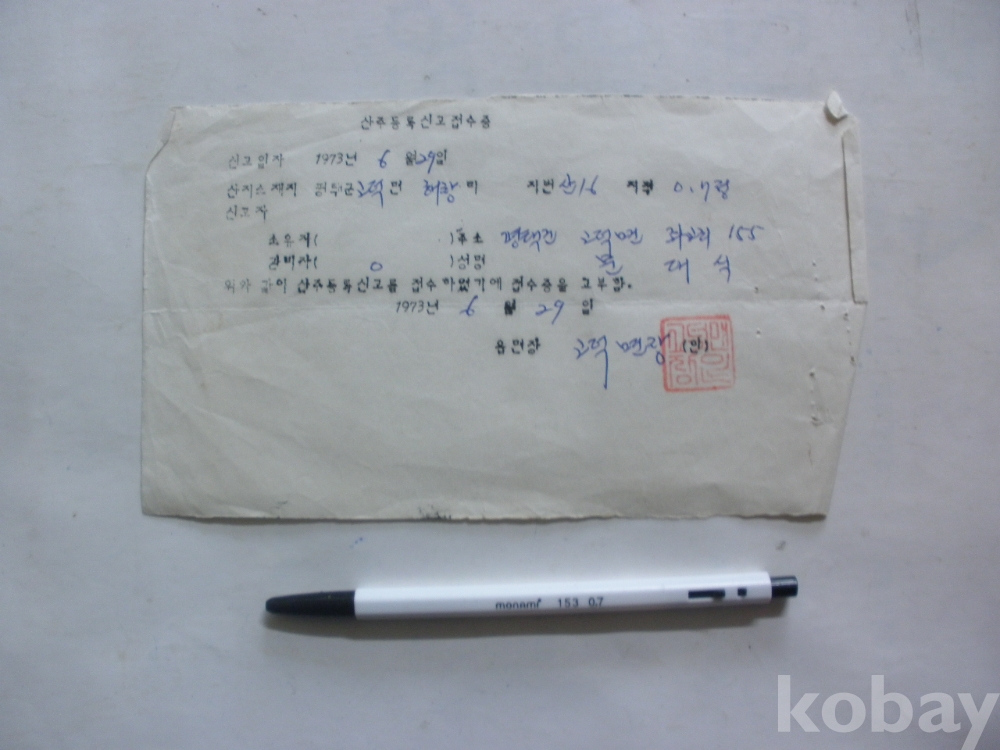 산주등록신고접수증
신고일자 1973년 6 월 29일
산지소재지 평택군 고덕 면 리 지번 산16 지적 0.7정
신고자
소유자( )주소 평택군 고덕면 155
관리자( 0 )성명 대석
위와 같이 산주등록신고를 접수하였기에 접수증을 교부함.
1973년 6 월 29 일
읍면장 고덕면장 (인)
고덕면장인
monami 153 0.7
kobay